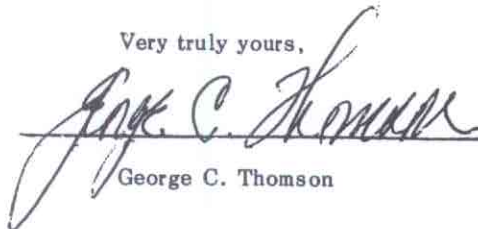 Very truly yours,
George C. Thomson
George C. Thomson